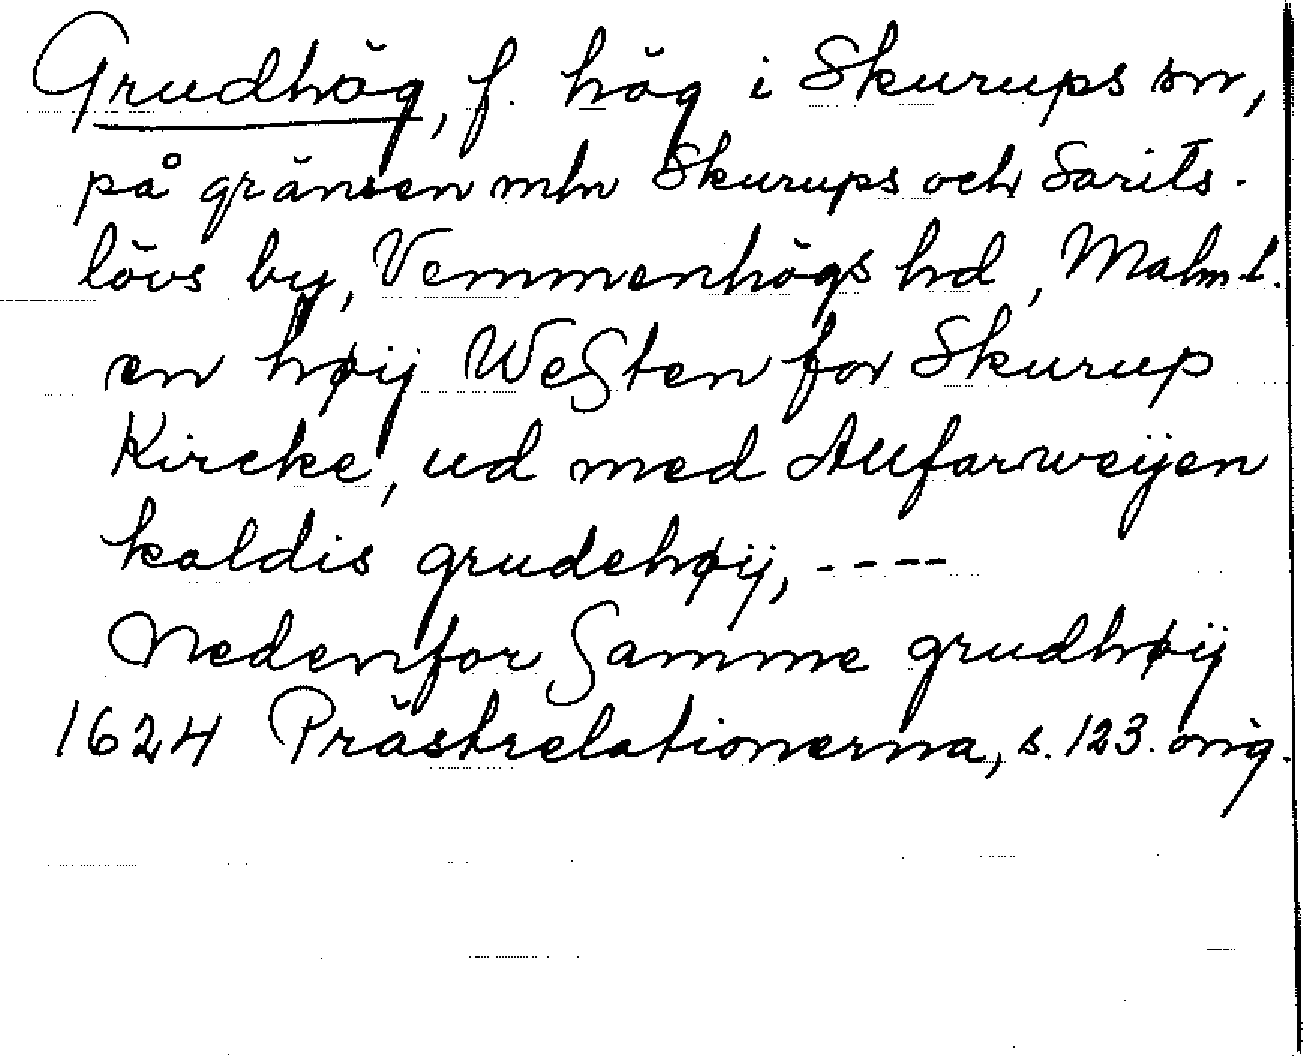 Grudhög, f. hög i Skurups sn,
på gränsen mln Skurups och Sarits-
lövs by, Vemmenhögs hd, Malm l.
en høij Westen for Skurup
Kircke, ud med Allfarweijen
kaldis grudehøij, ----
Nedenfor Samme grudhøij
1624 Prästrelationerna, s. 123. orig.